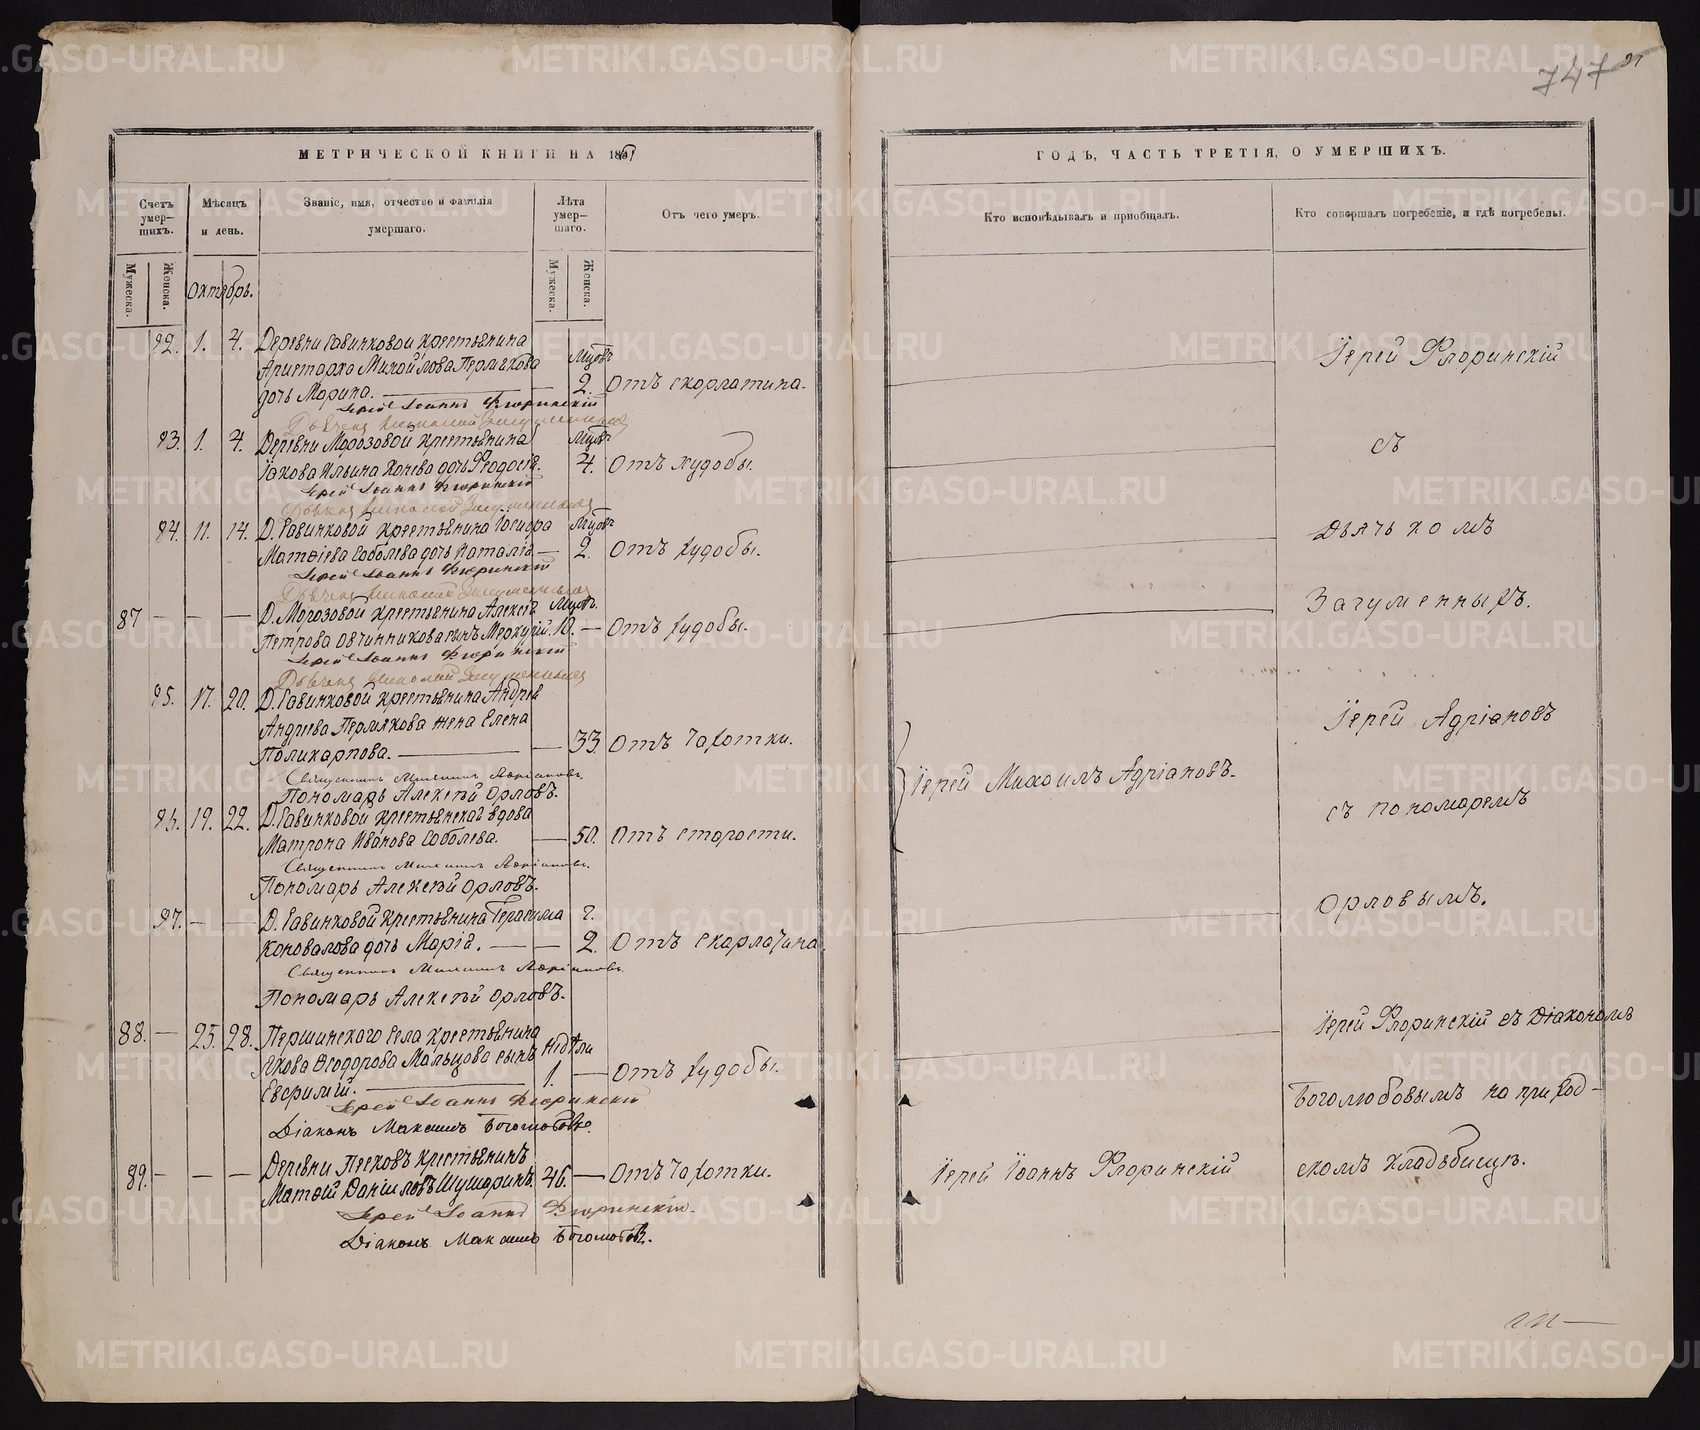 747
91
МЕТРИЧЕСКОЙ КНИГИ НА 1861
ГОДЪ, ЧАСТЬ ТРЕТІЯ, О УМЕРШИХЪ.
Счетъ умер-
шихъ.
Мѣсяцъ
и день.
Званіе, имя, отчество и фамилія
умершаго.
Лѣта
умер-
шаго.
Отъ чего умеръ.
Кто исповѣдывалъ и приобщалъ.
Кто совершалъ погребеніе, и гдѣ погребены.
Мужеска.
Женска.
Октябрь.
Мужеска.
Женска.
92. 1. 4. Деревни Савинковой крестьянина
Аристарха Михайлова Пермякова Мцовъ
дочь Марина. 2. Отъ скарлатина.
Іерей Іоаннъ Флоринскій
Дьячекъ Николай Загуменныхъ
93. 1. 4. Деревни Морозовой крестьянина Мцовъ
Іакова Ильина дочь Феодосія. 4. Отъ худобы.
Іерей Іоаннъ Флоринскій
Дьячекъ Николай Загуменныхъ
94. 11. 14. Д. Савинковой крестьянина Іосифа Мцовъ
Матѳіева Соболева дочь Наталія 2. Отъ худобы.
Іерей Іоаннъ Флоринскій
Дьячекъ Николай Загуменныхъ
87 Д. Морозовой крестьянина Алексія Мцовъ.
Петрова Овчинникова сынъ Меркурій. 10. Отъ худобы.
Іерей Іоаннъ Флоринскій
Дьячекъ Николай Загуменныхъ
95. 17. 20. Д. Савинковой крестьянина Андрея
Андреева Пермякова жена Елена
Поликарпова. 33 Отъ чахотки.
Священникъ Михаилъ Адріановъ.
Пономарь Алексѣй Орловъ.
96. 19. 22. Д. Савинковой крестьянская вдова
Матрона Иванова Соболева. 50. Отъ старости.
Священникъ Михаилъ Адріановъ.
Пономарь Алексѣй Орловъ.
97. Д. Савинковой крестьянина Герасима г.
Коновалова дочь Марія. 2. Отъ скарлатина.
Священникъ Михаилъ Адріановъ.
Пономарь Алексѣй Орловъ.
88. 25. 28. Першинского села крестьянина
Якова Ѳеодорова Мальцова сынъ недѣли
Евфимій. 1. Отъ худобы.
Іерей Іоаннъ Флоринскій
Діаконъ Максимъ Боголюбовъ.
89. Деревни Песковъ крестьянинъ
Матѳій Даниловъ Шушаринъ. 46. Отъ чахотки.
Іерей Іоаннъ Флоринскій.
Діаконъ Максимъ Боголюбовъ.
Іерей Михаилъ Адріановъ.
Іерей Іоаннъ Флоринскій
Іерей Флоринскій
съ
дьячкомъ
Загуменныхъ.
Іерей Адріановъ
съ пономаремъ
Орловымъ.
Іерей Флоринскій съ Діакономъ
Боголюбовымъ на приход-
скомъ кладьбищѣ.
METRIKI.GASO-URAL.RU